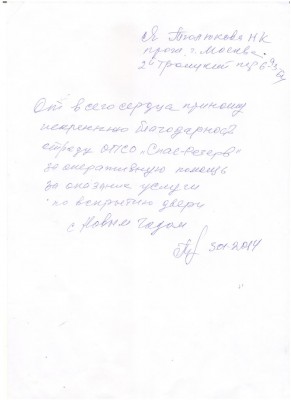 Я Толюкова Н К
прож. г. Москва.
2й Троицкий пер 6
От всего сердца приношу
искреннюю благодарность
отряду ОПСО „Спас-Резерв"
за оперативную помощь
за оказание услуги
по вскрытию двери
с Новым Годом
2014